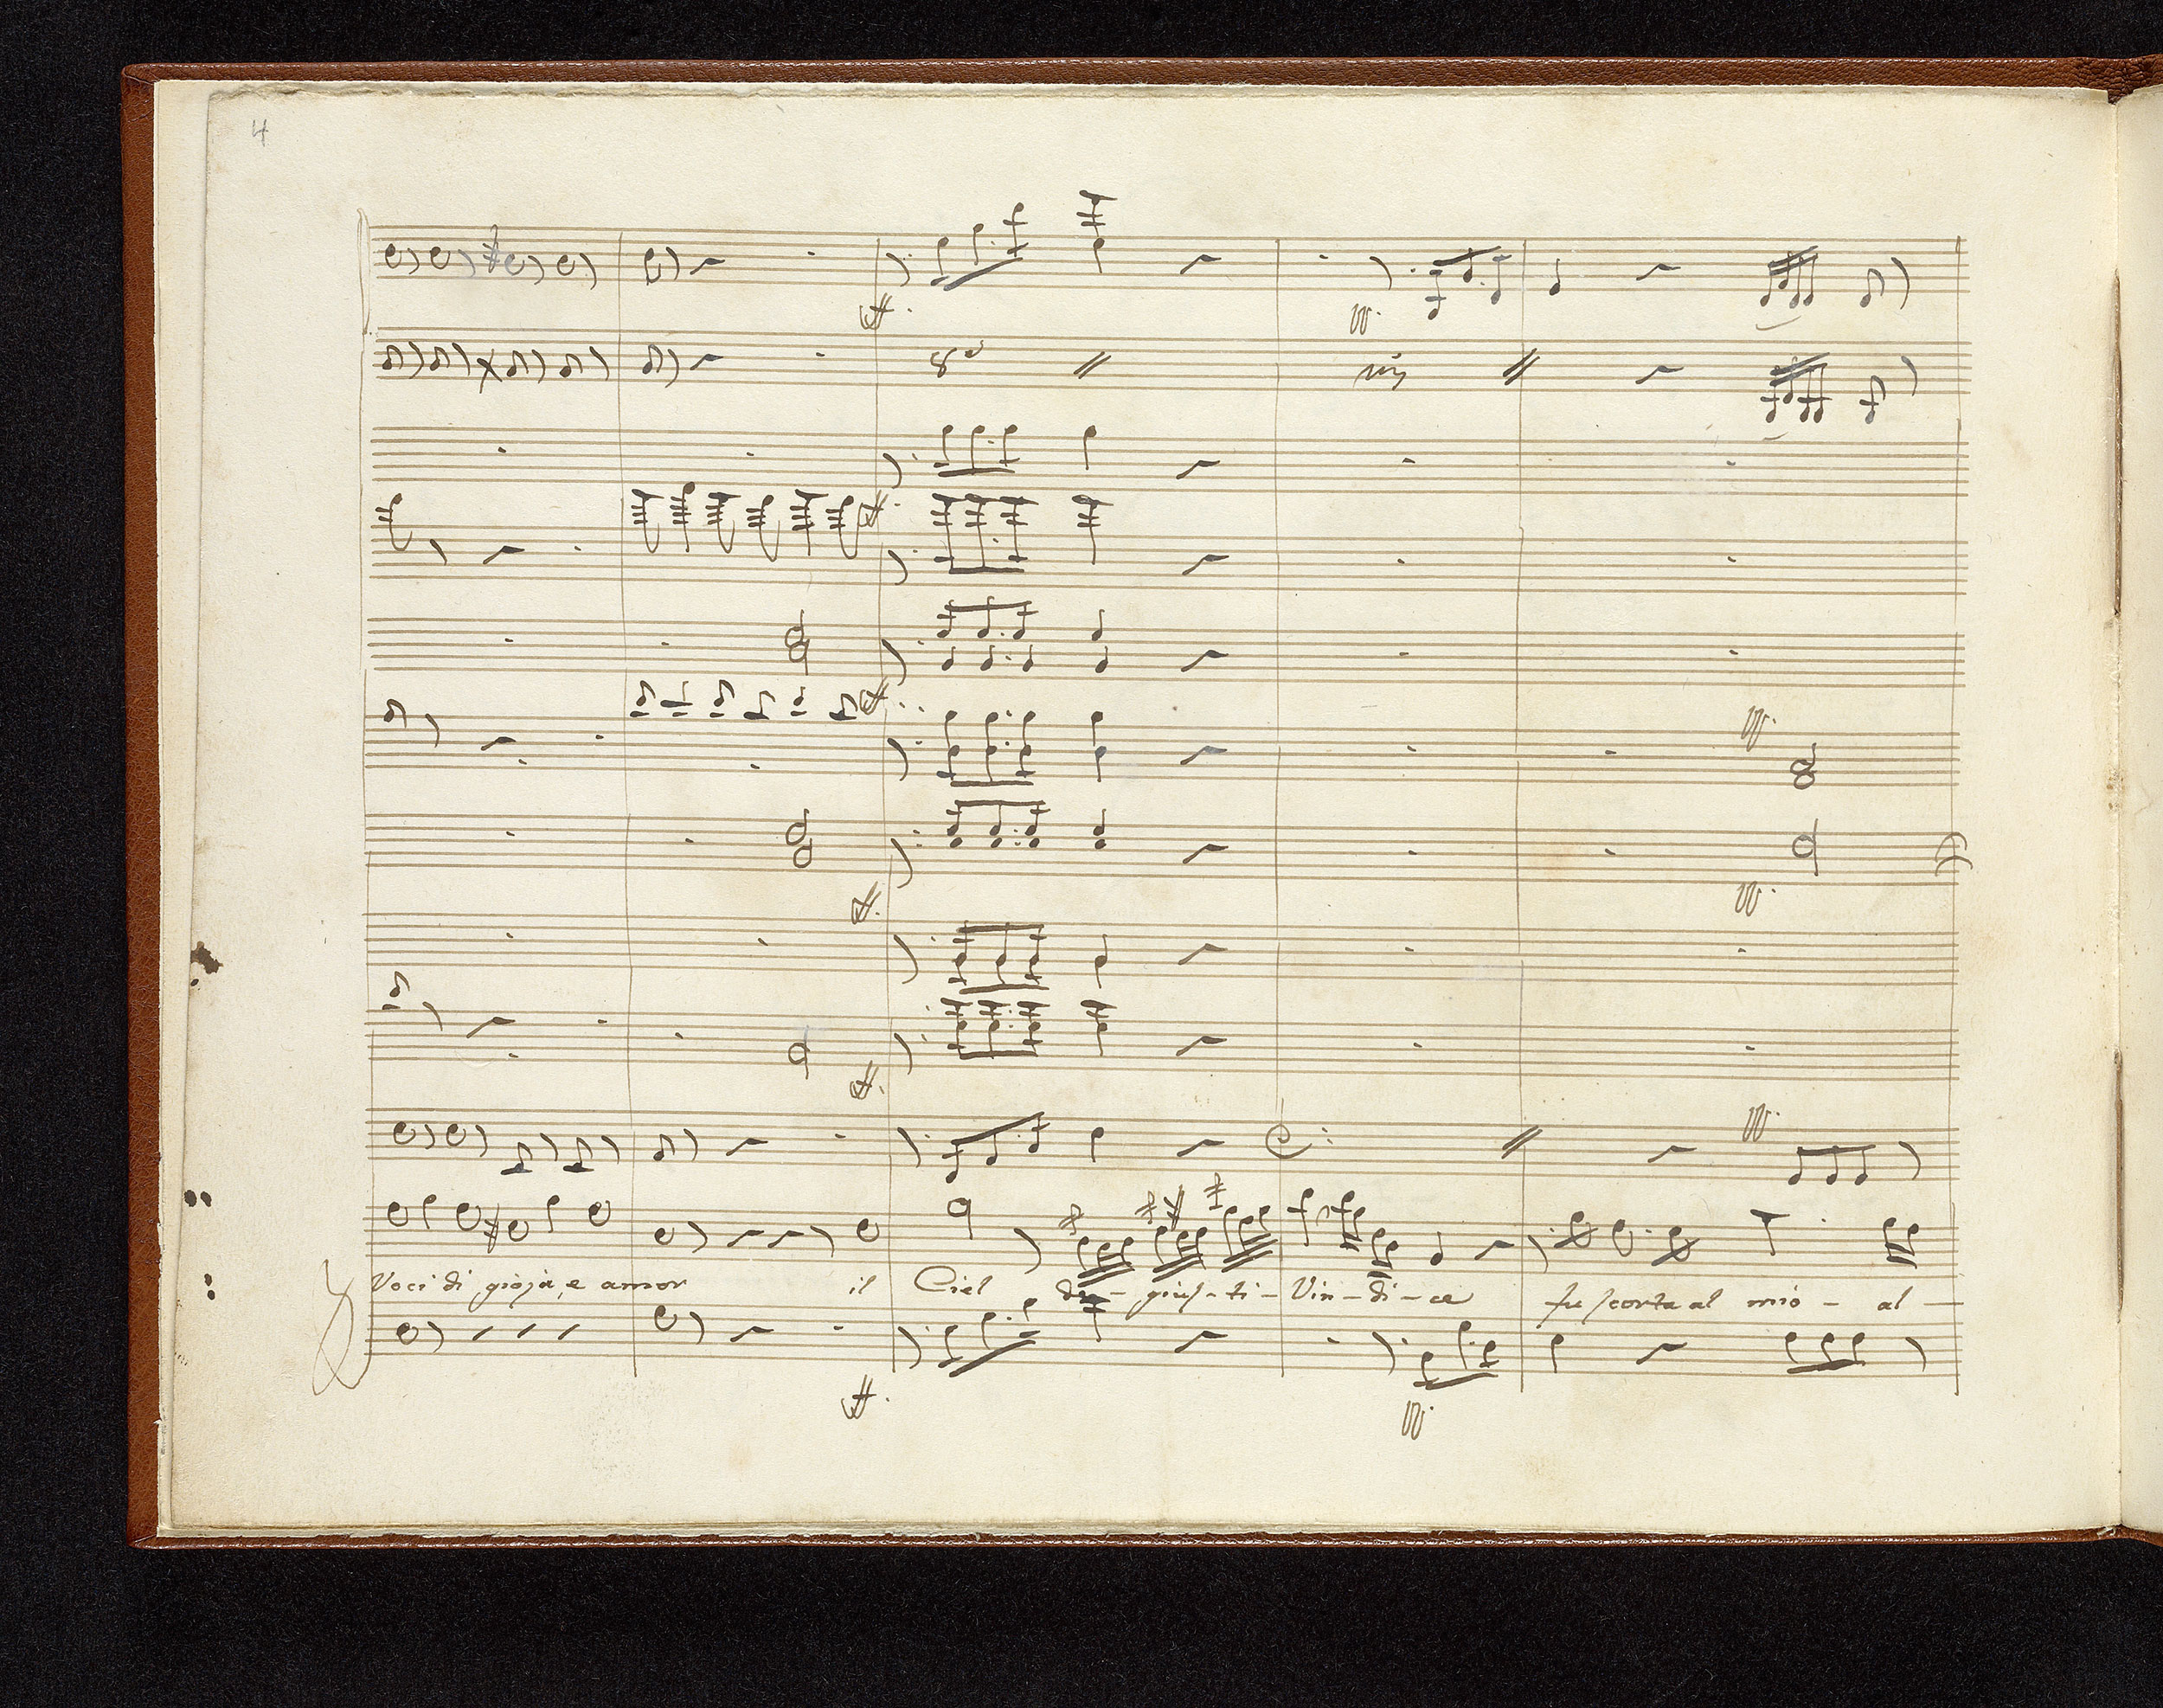 4
8va
Voci di gioja, e amor il Ciel de-giusti-Vin-di-ce fu scorta al mio-al-